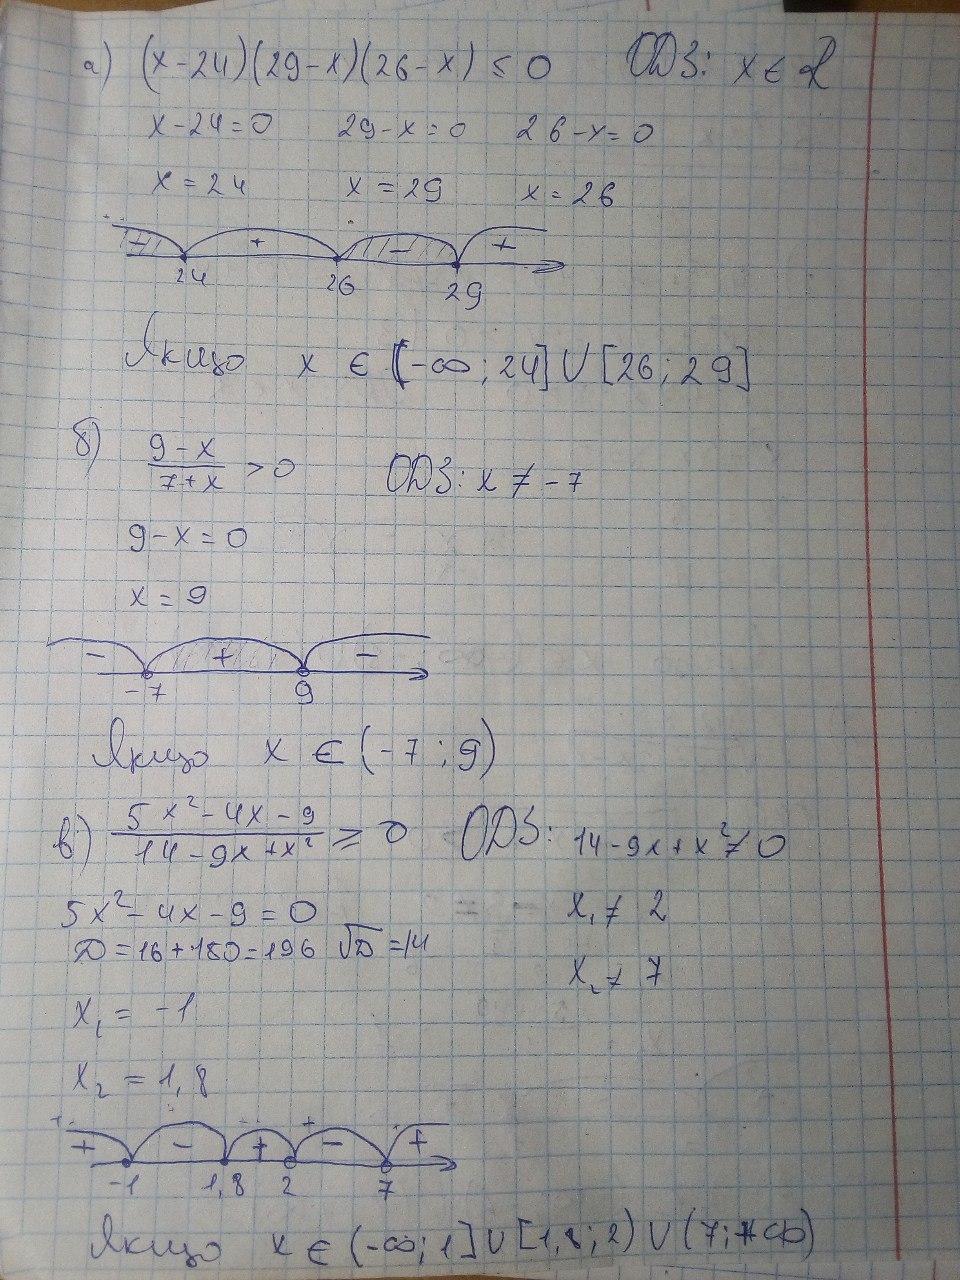 а) (x-24)(29-x)(26-x) ≤ 0 ODЗ: x ∈ R
x-24=0 29-x=0 26-x=0
x=24 x=29 x=26
- + - +
24 26 29
Якщо x ∈ (-∞; 24] U [26; 29]
б) (9-x)/(7+x) > 0 ODЗ: x ≠ -7
9-x=0
x=9
- + -
-7 9
Якщо x ∈ (-7; 9)
в) (5x²-4x-9)/(14-9x+x²) ≥ 0 ODЗ: 14-9x+x² ≠ 0
5x²-4x-9=0 x₁ ≠ 2
D=16+180=196 √D=14
x₂ ≠ 7
x₁ = -1
x₂ = 1,8
+ - + - +
-1 1,8 2 7
Якщо x ∈ (-∞; 1] U [1,8; 2) U (7; +∞)